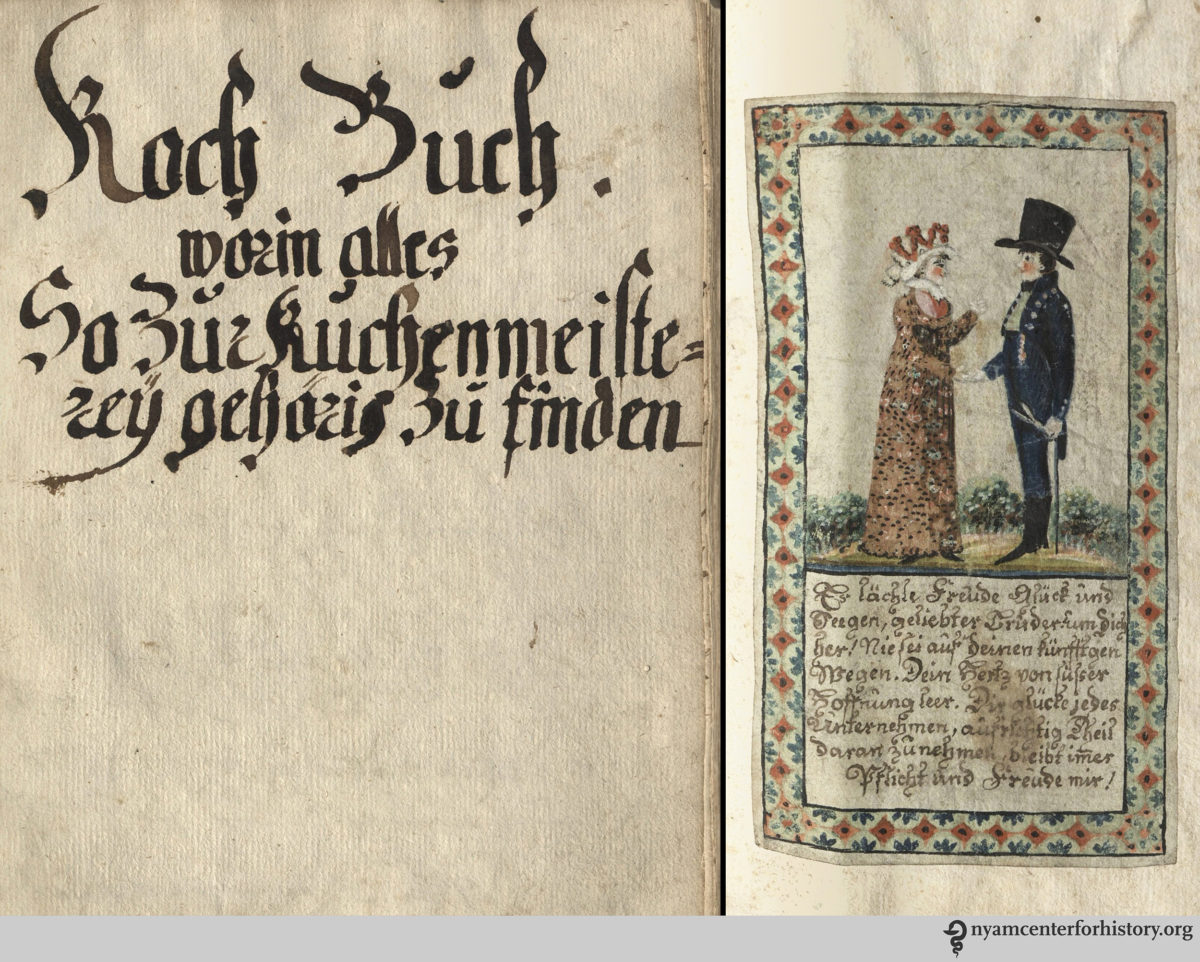 Koch Buch.
worin alles
So Zur Kuchenmeiste=
reÿ gehöris Zu finden
Es lächle Freude Glück und
Seegen, geliebter Bruder um dich
her! Nie sei auf deinen künfftgen
Wegen. Dein Hertz von süsser
Hoffnung leer. Dir glücke jedes
Unternehmen, aufrichtig Theil
daran zu nehmen, bleibt im̄er
Pflicht und Freude mir!
nyamcenterforhistory.org